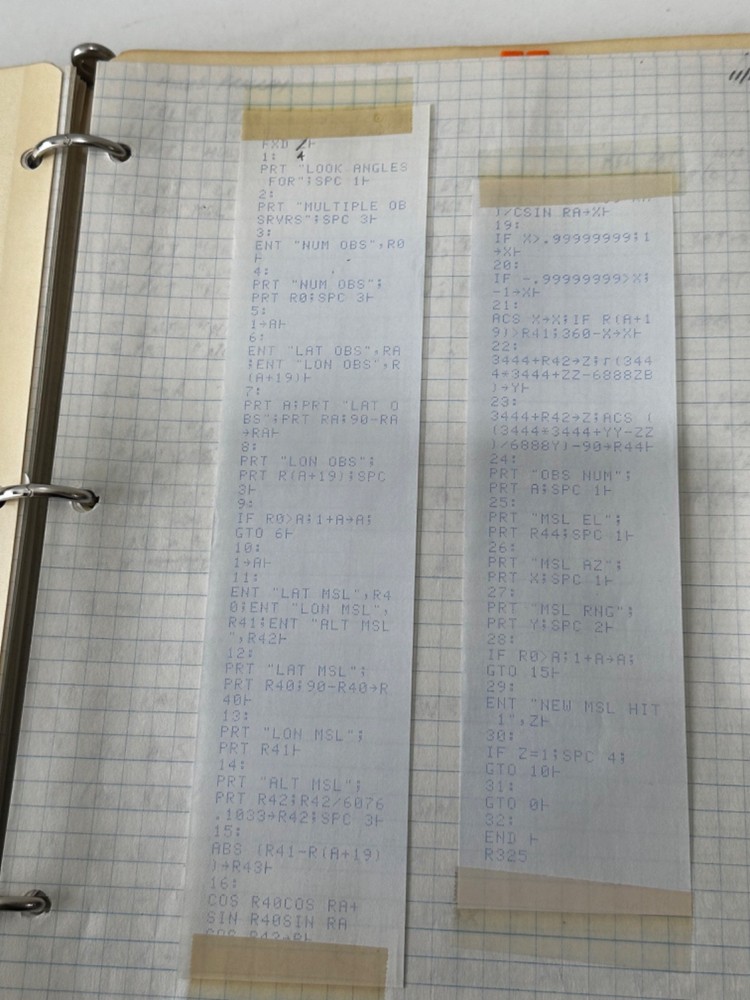 FXD 2⊢
4
1:
PRT "LOOK ANGLES
 FOR";SPC 1⊢
2:
PRT "MULTIPLE OB
SRVRS";SPC 3⊢
3:
ENT "NUM OBS",R0
⊢
4:
PRT "NUM OBS";
PRT R0;SPC 3⊢
5:
1→A⊢
6:
ENT "LAT OBS",RA
;ENT "LON OBS",R
(A+19)⊢
7:
PRT A;PRT "LAT O
BS";PRT RA;90-RA
→RA⊢
8:
PRT "LON OBS";
PRT R(A+19);SPC
3⊢
9:
IF R0>A;1+A→A;
GTO 6⊢
10:
1→A⊢
11:
ENT "LAT MSL",R4
0;ENT "LON MSL",
R41;ENT "ALT MSL
",R42⊢
12:
PRT "LAT MSL";
PRT R40;90-R40→R
40⊢
13:
PRT "LON MSL";
PRT R41⊢
14:
PRT "ALT MSL";
PRT R42;R42/6076
.1033→R42;SPC 3⊢
15:
ABS (R41-R(A+19)
)→R43⊢
16:
COS R40COS RA+
SIN R40SIN RA
COS R43→B⊢
)/CSIN RA→X⊢
19:
IF X>.99999999;1
→X⊢
20:
IF -.99999999>X;
-1→X⊢
21:
ACS X→X;IF R(A+1
9)>R41;360-X→X⊢
22:
3444+R42→Z;√(344
4*3444+ZZ-6888ZB
)→Y⊢
23:
3444+R42→Z;ACS (
(3444*3444+YY-ZZ
)/6888Y)-90→R44⊢
24:
PRT "OBS NUM";
PRT A;SPC 1⊢
25:
PRT "MSL EL";
PRT R44;SPC 1⊢
26:
PRT "MSL AZ";
PRT X;SPC 1⊢
27:
PRT "MSL RNG";
PRT Y;SPC 2⊢
28:
IF R0>A;1+A→A;
GTO 15⊢
29:
ENT "NEW MSL HIT
 1",Z⊢
30:
IF Z=1;SPC 4;
GTO 10⊢
31:
GTO 0⊢
32:
END ⊢
R325